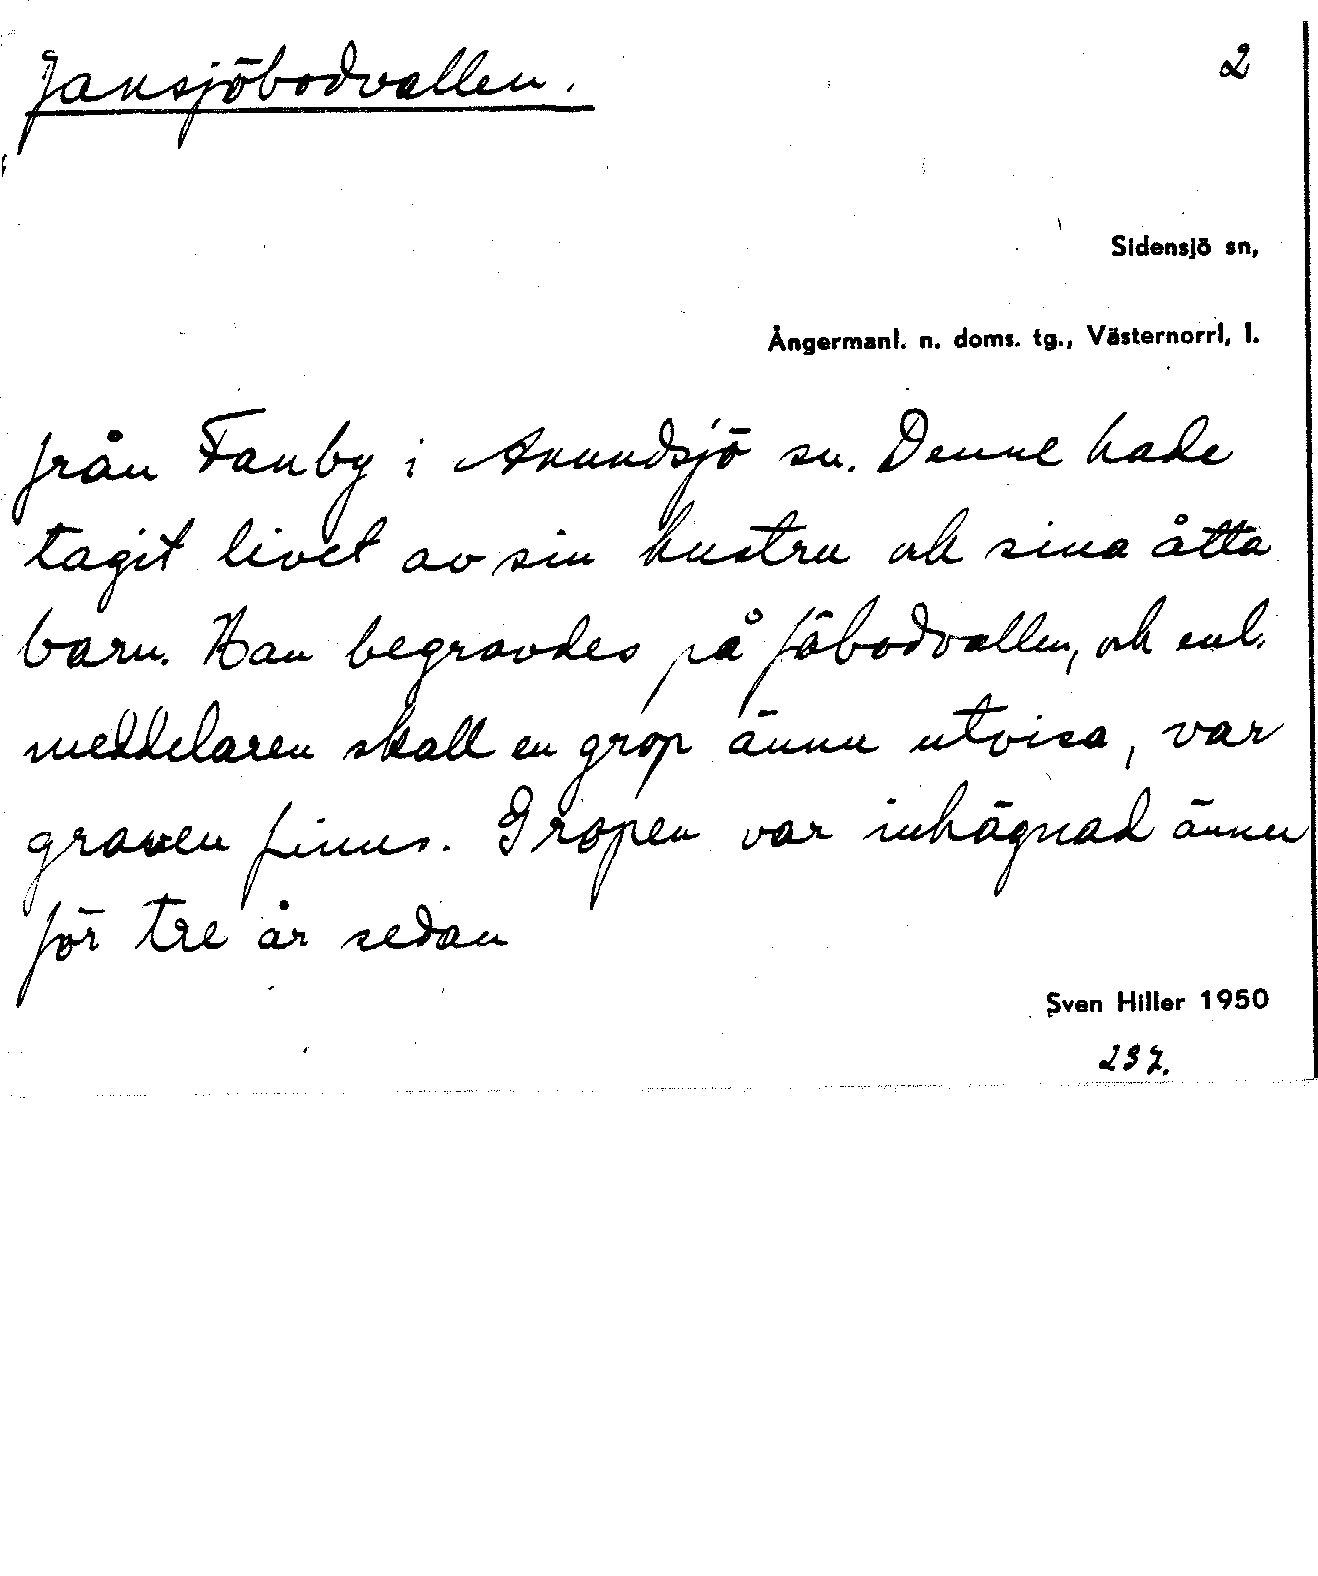 Jansjöbodvallen. 2
Sidensjö sn,
Ångermanl. n. doms. tg., Västernorrl, l.
från Fanby i Anundsjö sn. Denne hade
tagit livet av sin hustru och sina åtta
barn. Han begravdes på fäbodvallen, och enl.
meddelaren skall en grop ännu utvisa, var
graven finns. Gropen var inhägnad ännu
för tre år sedan
Sven Hiller 1950
237.